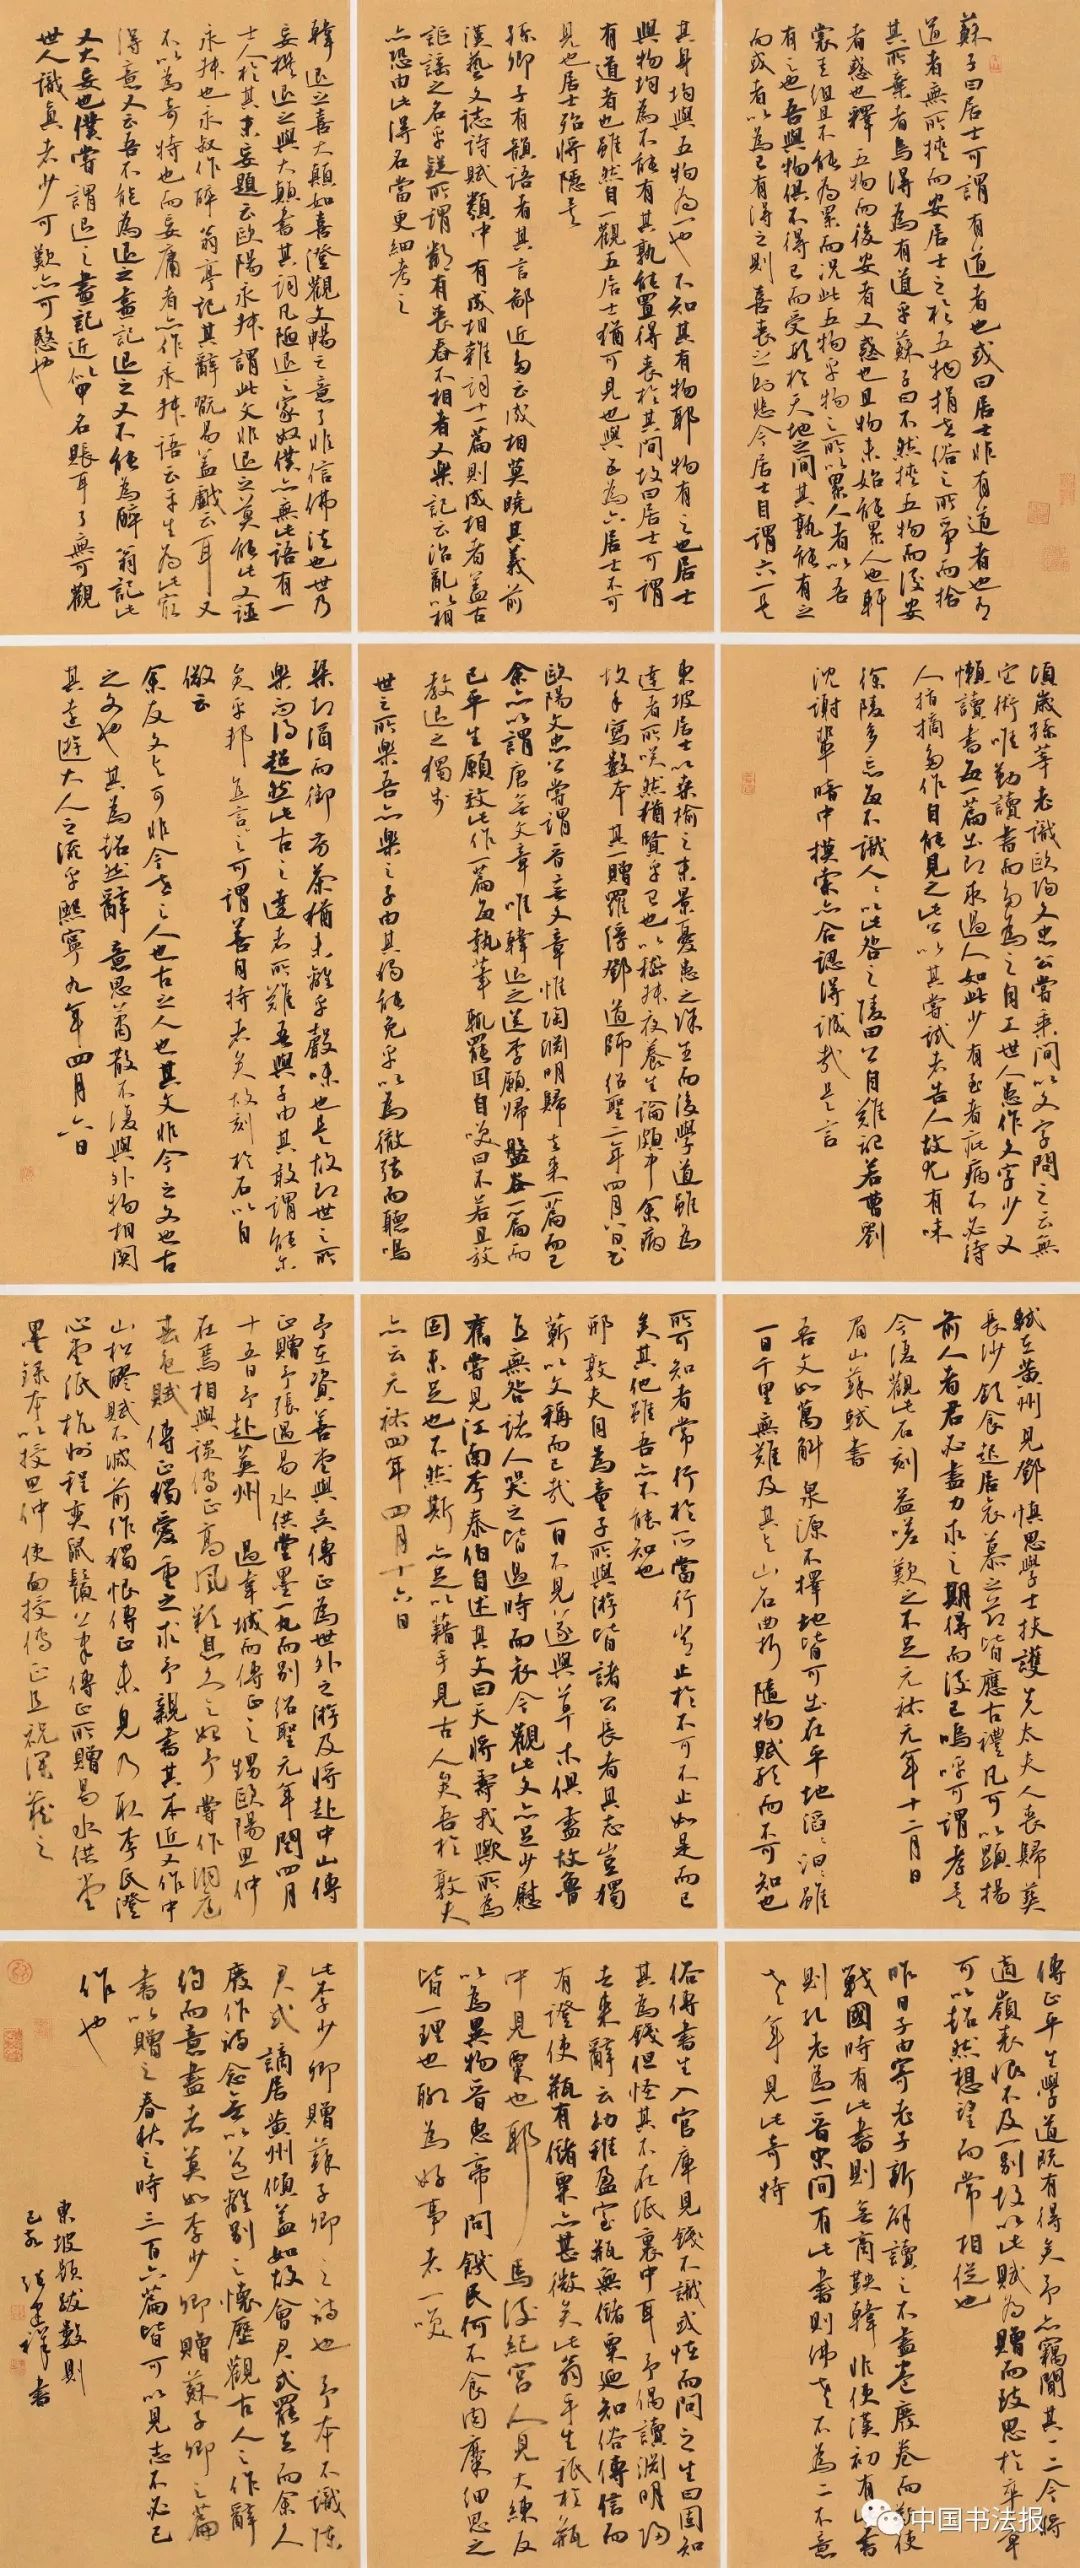 蘇子曰居士可謂有道者也或曰居士非有道者也有
道者無所挾而安居士之於五物捐世俗之所爭而拾
其所棄者烏得為有道乎蘇子曰不然挾五物而後安
者惑也釋五物而後安者又惑也且物未始能累人也軒
裳圭組且不能為累而況此五物乎物之所以累人者以吾
有之也吾與物俱不得已而受形於天地之間其孰能有之
而或者以為己有得之則喜喪之則悲今居士自謂六一是
其身均與五物為一也不知其有物耶物有之也居士
與物均為不能有其孰能置得喪於其間故曰居士可謂
有道者也雖然自一觀五居士猶可見也與五為六居士不可
見也居士殆將隱矣
孫卿子有韻語者其言鄙近多云成相莫曉其義前
漢藝文誌詩賦類中有成相雜詞十一篇則成相者蓋古
謳謠之名乎疑所謂鄰有喪舂不相者又樂記云治亂以相
亦恐由此得名當更細考之
韓退之喜大顛如喜澄觀文暢之意了非信佛法也世乃
妄撰退之與大顛書其詞凡陋退之家奴僕亦無此語有一
士人於其末妄題云歐陽永叔謂此文非退之莫能此又誣
永叔也永叔作醉翁亭記其辭翫易蓋戲云耳又
不以為奇特也而妄庸者亦作永叔語云平生為此最
得意又云吾不能為退之畫記退之又不能為醉翁記此
又大妄也僕嘗謂退之畫記近似甲名賬耳了無可觀
世人識真者少可歎亦可愍也
頃歲孫莘老識歐陽文忠公嘗乘間以文字問之云無
它術唯勤讀書而多為之自工世人患作文字少又
懶讀書每一篇出即求過人如此少有至者疵病不必待
人指摘多作自能見之此公以其嘗試者告人故尤有味
徐陵多忘每不識人人以此咎之陵曰公自難記若曹劉
沈謝輩暗中摸索亦合認得誠哉是言
東坡居士以桑榆之末景憂患之餘生而後學道雖為
達者所笑然猶賢乎已也以嵇叔夜養生論頗中余病
故手寫數本其一贈羅浮鄧道師紹聖二年四月八日書
歐陽文忠公嘗謂晉無文章惟陶淵明歸去來一篇而已
余亦以謂唐無文章唯韓退之送李愿歸盤谷一篇而
已平生願效此作一篇每執筆輒罷因自笑曰不若且放
教退之獨步
世之所樂吾亦樂之子由其獨能免乎以為徹弦而聽鳴
琴却酒而御芳茶猶未離乎聲味也是故即世之所
樂而得超然此古之達者所難吾與子由其敢謂能爾
矣乎邦直之言可謂善自持者矣故刻於石以自
儆云
余友文與可非今世之人也古之人也其文非今之文也古
之文也其為超然辭意思蕭散不復與外物相關
其遠遊大人之流乎熙寧九年四月六日
軾在黃州見鄧慎思學士扶護先太夫人喪歸葬
長沙飲食起居哀慕之節皆應古禮凡可以顯揚
前人者君必盡力求之期得而後已嗚呼可謂孝矣
今復觀此石刻益嗟歎之不足元祐元年十二月日
眉山蘇軾書
吾文如萬斛泉源不擇地皆可出在平地滔滔汩汩雖
一日千里無難及其與山石曲折隨物賦形而不可知也
所可知者常行於所當行常止於不可不止如是而已
矣其他雖吾亦不能知也
邢敦夫自為童子所與游皆諸公長者其志豈獨
蘄以文稱而已哉一日不見遂與草木俱盡故魯
直無咎諸人哭之皆過時而哀今觀此文亦足少慰
舊嘗見江南李泰伯自述其文曰天將壽我歟所為
固未足也不然斯亦足以藉手見古人矣吾於敦夫
亦云元祐四年四月十六日
予在資善堂與吳傳正為世外之游及將赴中山傳
正贈予張遇易水供堂墨一丸而別紹聖元年閏四月
十五日予赴英州過韋城而傳正之甥歐陽思仲
在焉相與談傳正高風歎息久之始予嘗作洞庭
春色賦傳正獨愛重之求予親書其本近又作中
山松醪賦不減前作獨恨傳正未見乃取李氏澄
心堂紙杭州程奕鼠鬚筆傳正所贈易水供堂
墨錄本以授思仲使面授傳正且祝深藏之
傳正平生學道既有得矣予亦竊聞其一二今將
適嶺表恨不及一別故以此賦為贈而致思於卒章
可以超然想望而常相從也
昨日子由寄老子新解讀之不盡卷廢卷而歎使
戰國時有此書則無商鞅韓非使漢初有此書
則孔老為一晉宋間有此書則佛老不為二不意
老年見此奇特
俗傳書生入官庫見錢不識或怪而問之生曰固知
其為錢但怪其不在紙裹中耳予偶讀淵明歸
去來辭云幼稚盈室瓶無儲粟迺知俗傳信而
有證使瓶有儲粟亦甚微矣此翁平生秪於瓶
中見粟也耶馬后紀宮人見大練反
以為異物晉惠帝問饑民何不食肉糜細思之
皆一理也聊為好事者一笑
此李少卿贈蘇子卿之詩也予本不識陳
君式謫居黃州傾蓋如故會君式罷去而余久
廢作詩念無以道離別之懷歷觀古人之作辭
約而意盡者莫如李少卿贈蘇子卿之篇
書以贈之春秋之時三百六篇皆可以見志不必己
作也
東坡題跋數則
己亥 書
中国书法报